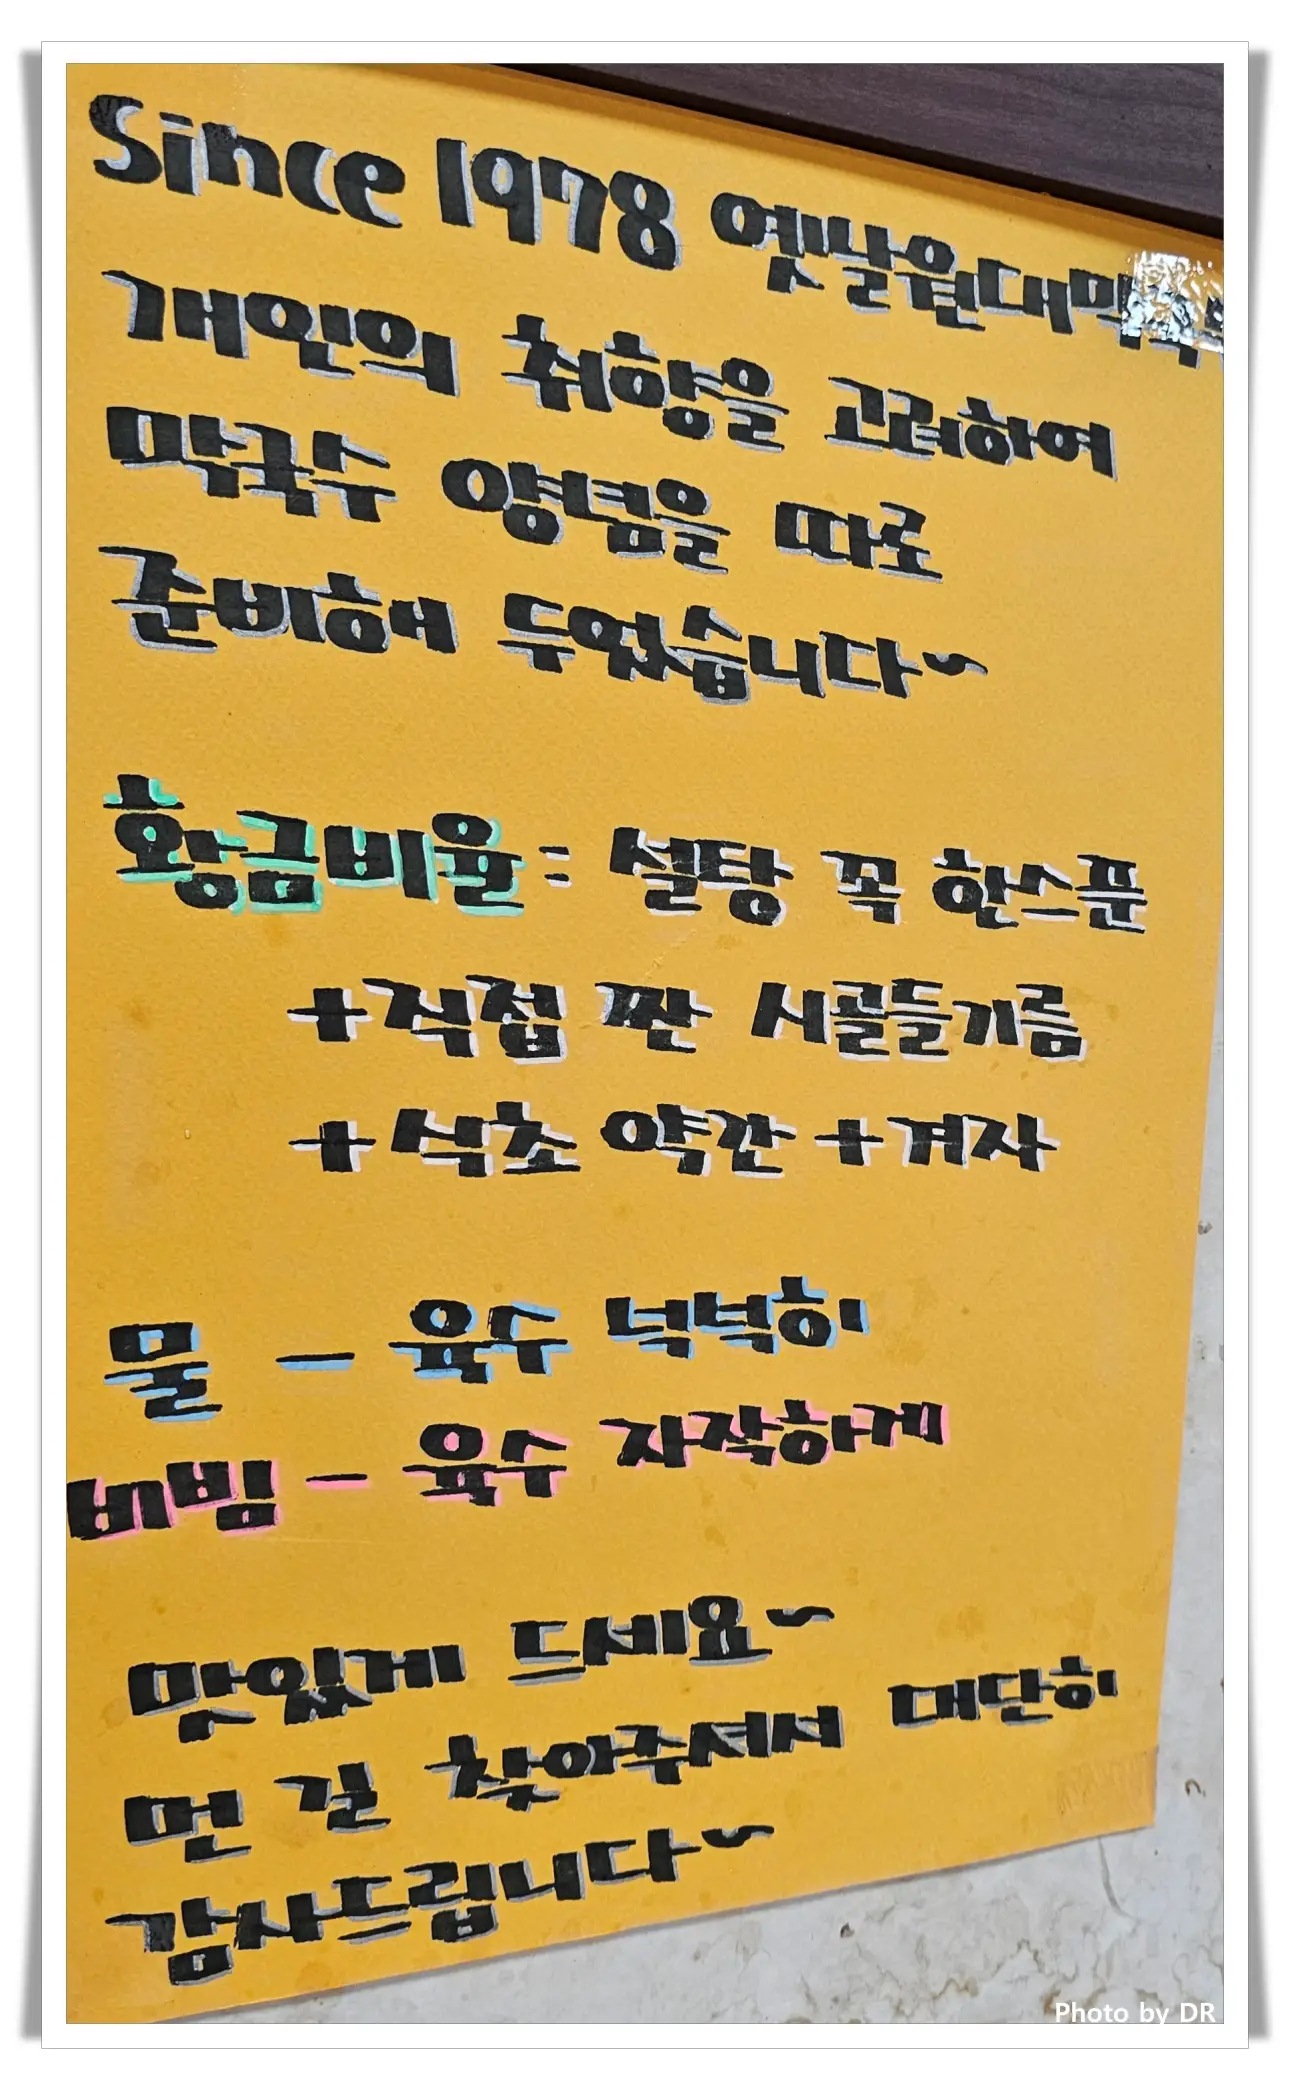 Since 1978 옛날원대막국수
개인의 취향을 고려하여
막국수 양념을 따로
준비해 두었습니다~
황금비율 : 설탕 꼭 한스푼
+직접 짠 시골들기름
+석초 약간 +겨자
물 - 육수 넉넉히
비빔 - 육수 자작하게
맛있게 드세요~
먼 길 찾아주셔서 대단히
감사드립니다~
Photo by DR